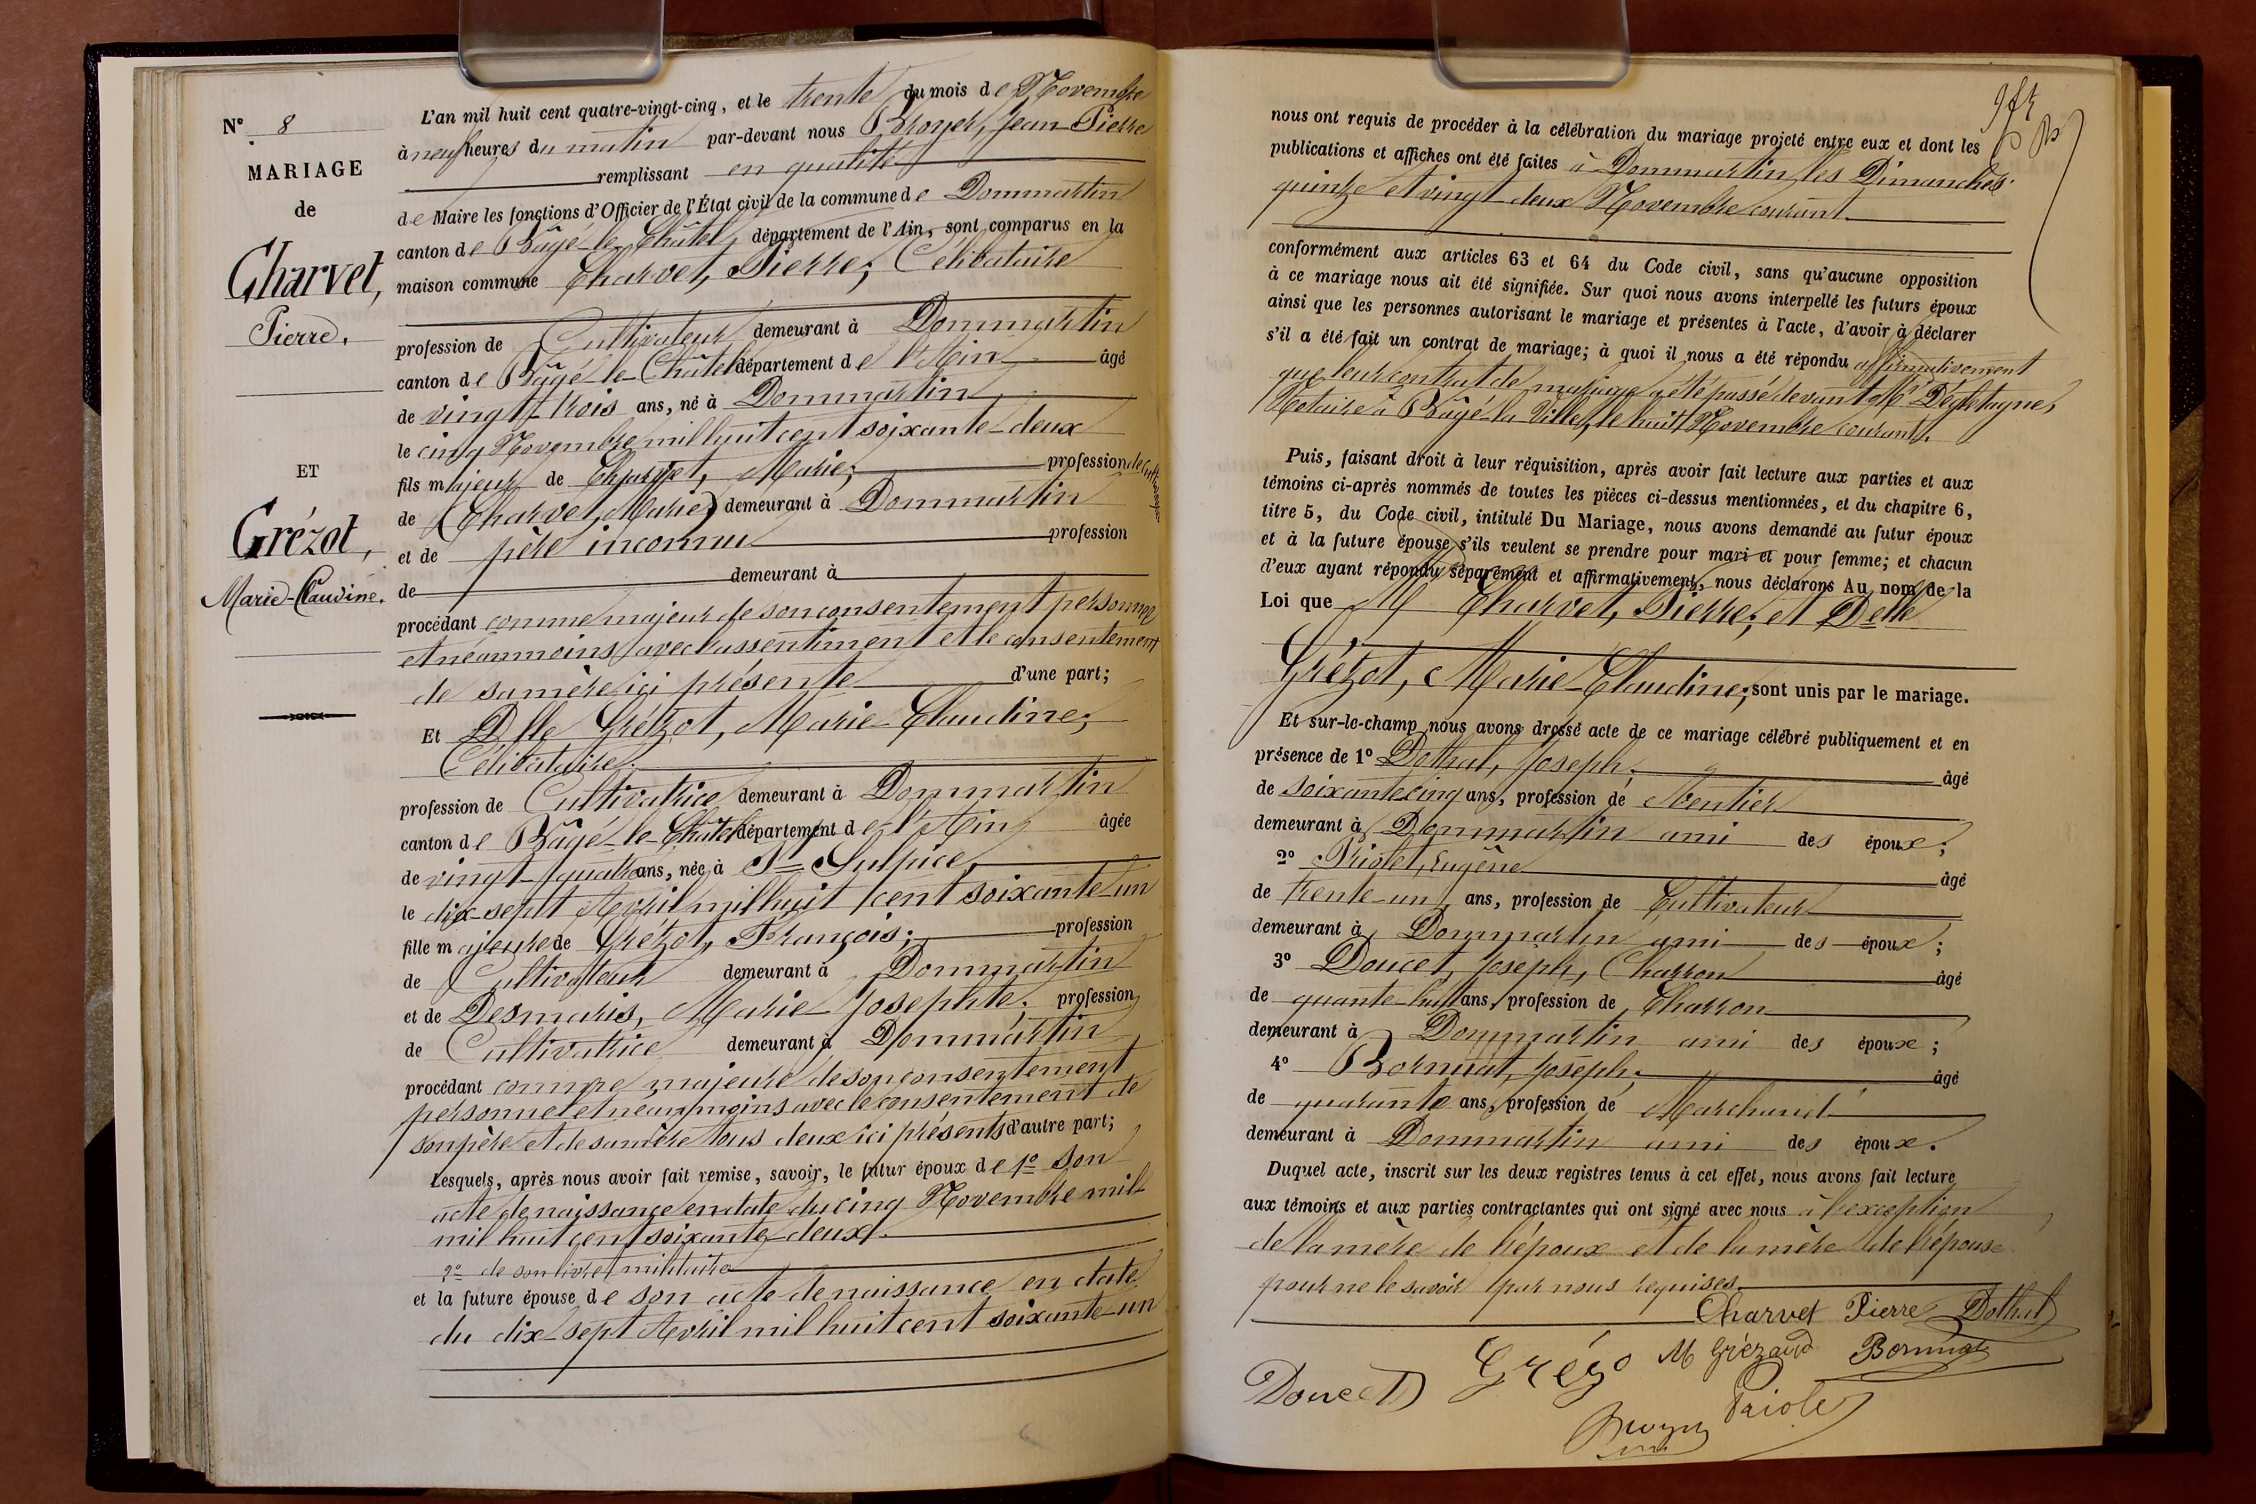 N° 8
MARIAGE
de
Charvet,
Pierre.
ET
Grézot,
Marie-Claudine.
L'an mil huit cent quatre-vingt-cinq, et le trente du mois de Novembre
à neuf heures du matin par-devant nous Broyer, Jean-Pierre
remplissant en qualité
de Maire les fonctions d'Officier de l'État civil de la commune de Dommartin
canton de Bâgé-le-Châtel, département de l'Ain, sont comparus en la
maison commune Charvet, Pierre; Célibataire
profession de Cultivateur demeurant à Dommartin
canton de Bâgé-le-Châtel département de l'Ain âgé
de vingt-trois ans, né à Dommartin
le cinq Novembre mil huit cent soixante-deux
fils majeur de Charvet, Marie; profession de Cultivatrice
de (Charvet, Marie) demeurant à Dommartin
et de père inconnu profession
de demeurant à
procédant comme majeur de son consentement personnel
et néanmoins avec l'assentiment et le consentement
de sa mère ici présente d'une part;
Et Dlle Grézot, Marie-Claudine;
Célibataire.
profession de Cultivatrice demeurant à Dommartin
canton de Bâgé-le-Châtel département de l'Ain âgée
de vingt-quatre ans, née à St Sulpice,
le dix-sept Avril mil huit cent soixante-un
fille majeure de Grézot, François; profession
de Cultivateur demeurant à Dommartin
et de Desmaris, Marie Josephte; profession
de Cultivatrice demeurant à Dommartin
procédant comme majeure de son consentement
personnel et néanmoins avec le consentement de
son père et de sa mère tous deux ici présents d'autre part;
Lesquels, après nous avoir fait remise, savoir, le futur époux de 1° son
acte de naissance en date du cinq Novembre mil
mil huit cent soixante-deux.
2° de son livret militaire
et la future épouse de son acte de naissance en date
du dix-sept Avril mil huit cent soixante-un
nous ont requis de procéder à la célébration du mariage projeté entre eux et dont les
publications et affiches ont été faites à Dommartin les Dimanches
quinze et vingt-deux Novembre courant
conformément aux articles 63 et 64 du Code civil, sans qu'aucune opposition
à ce mariage nous ait été signifiée. Sur quoi nous avons interpellé les futurs époux
ainsi que les personnes autorisant le mariage et présentes à l'acte, d'avoir à déclarer
s'il a été fait un contrat de mariage; à quoi il nous a été répondu affirmativement
que leur contrat de mariage a été passé devant Me Dégletagne,
Notaire à Bâgé-la-Ville, le huit Novembre courant.
Puis, faisant droit à leur réquisition, après avoir fait lecture aux parties et aux
témoins ci-après nommés de toutes les pièces ci-dessus mentionnées, et du chapitre 6,
titre 5, du Code civil, intitulé Du Mariage, nous avons demandé au futur époux
et à la future épouse s'ils veulent se prendre pour mari et pour femme; et chacun
d'eux ayant répondu séparément et affirmativement, nous déclarons Au nom de la
Loi que M Charvet, Pierre; et Delle
Grézot, Marie-Claudine; sont unis par le mariage.
Et sur-le-champ nous avons dressé acte de ce mariage célébré publiquement et en
présence de 1° Dothal, Joseph; âgé
de soixante cinq ans, profession de Rentier
demeurant à Dommartin ami des époux;
2° Priolet, Eugène âgé
de trente-un ans, profession de Cultivateur
demeurant à Dommartin ami des époux;
3° Doucet, Joseph, Charron âgé
de quarante-huit ans, profession de Charron
demeurant à Dommartin ami des époux;
4° Bornuat, Joseph; âgé
de quarante ans, profession de Marchand
demeurant à Dommartin ami des époux.
Duquel acte, inscrit sur les deux registres tenus à cet effet, nous avons fait lecture
aux témoins et aux parties contractantes qui ont signé avec nous à l'exception
de la mère de l'époux et de la mère de l'épouse
pour ne le savoir par nous requises.
Charvet Pierre Dothal
Doucet Grézo M Grézaud Bornuat
Priolet